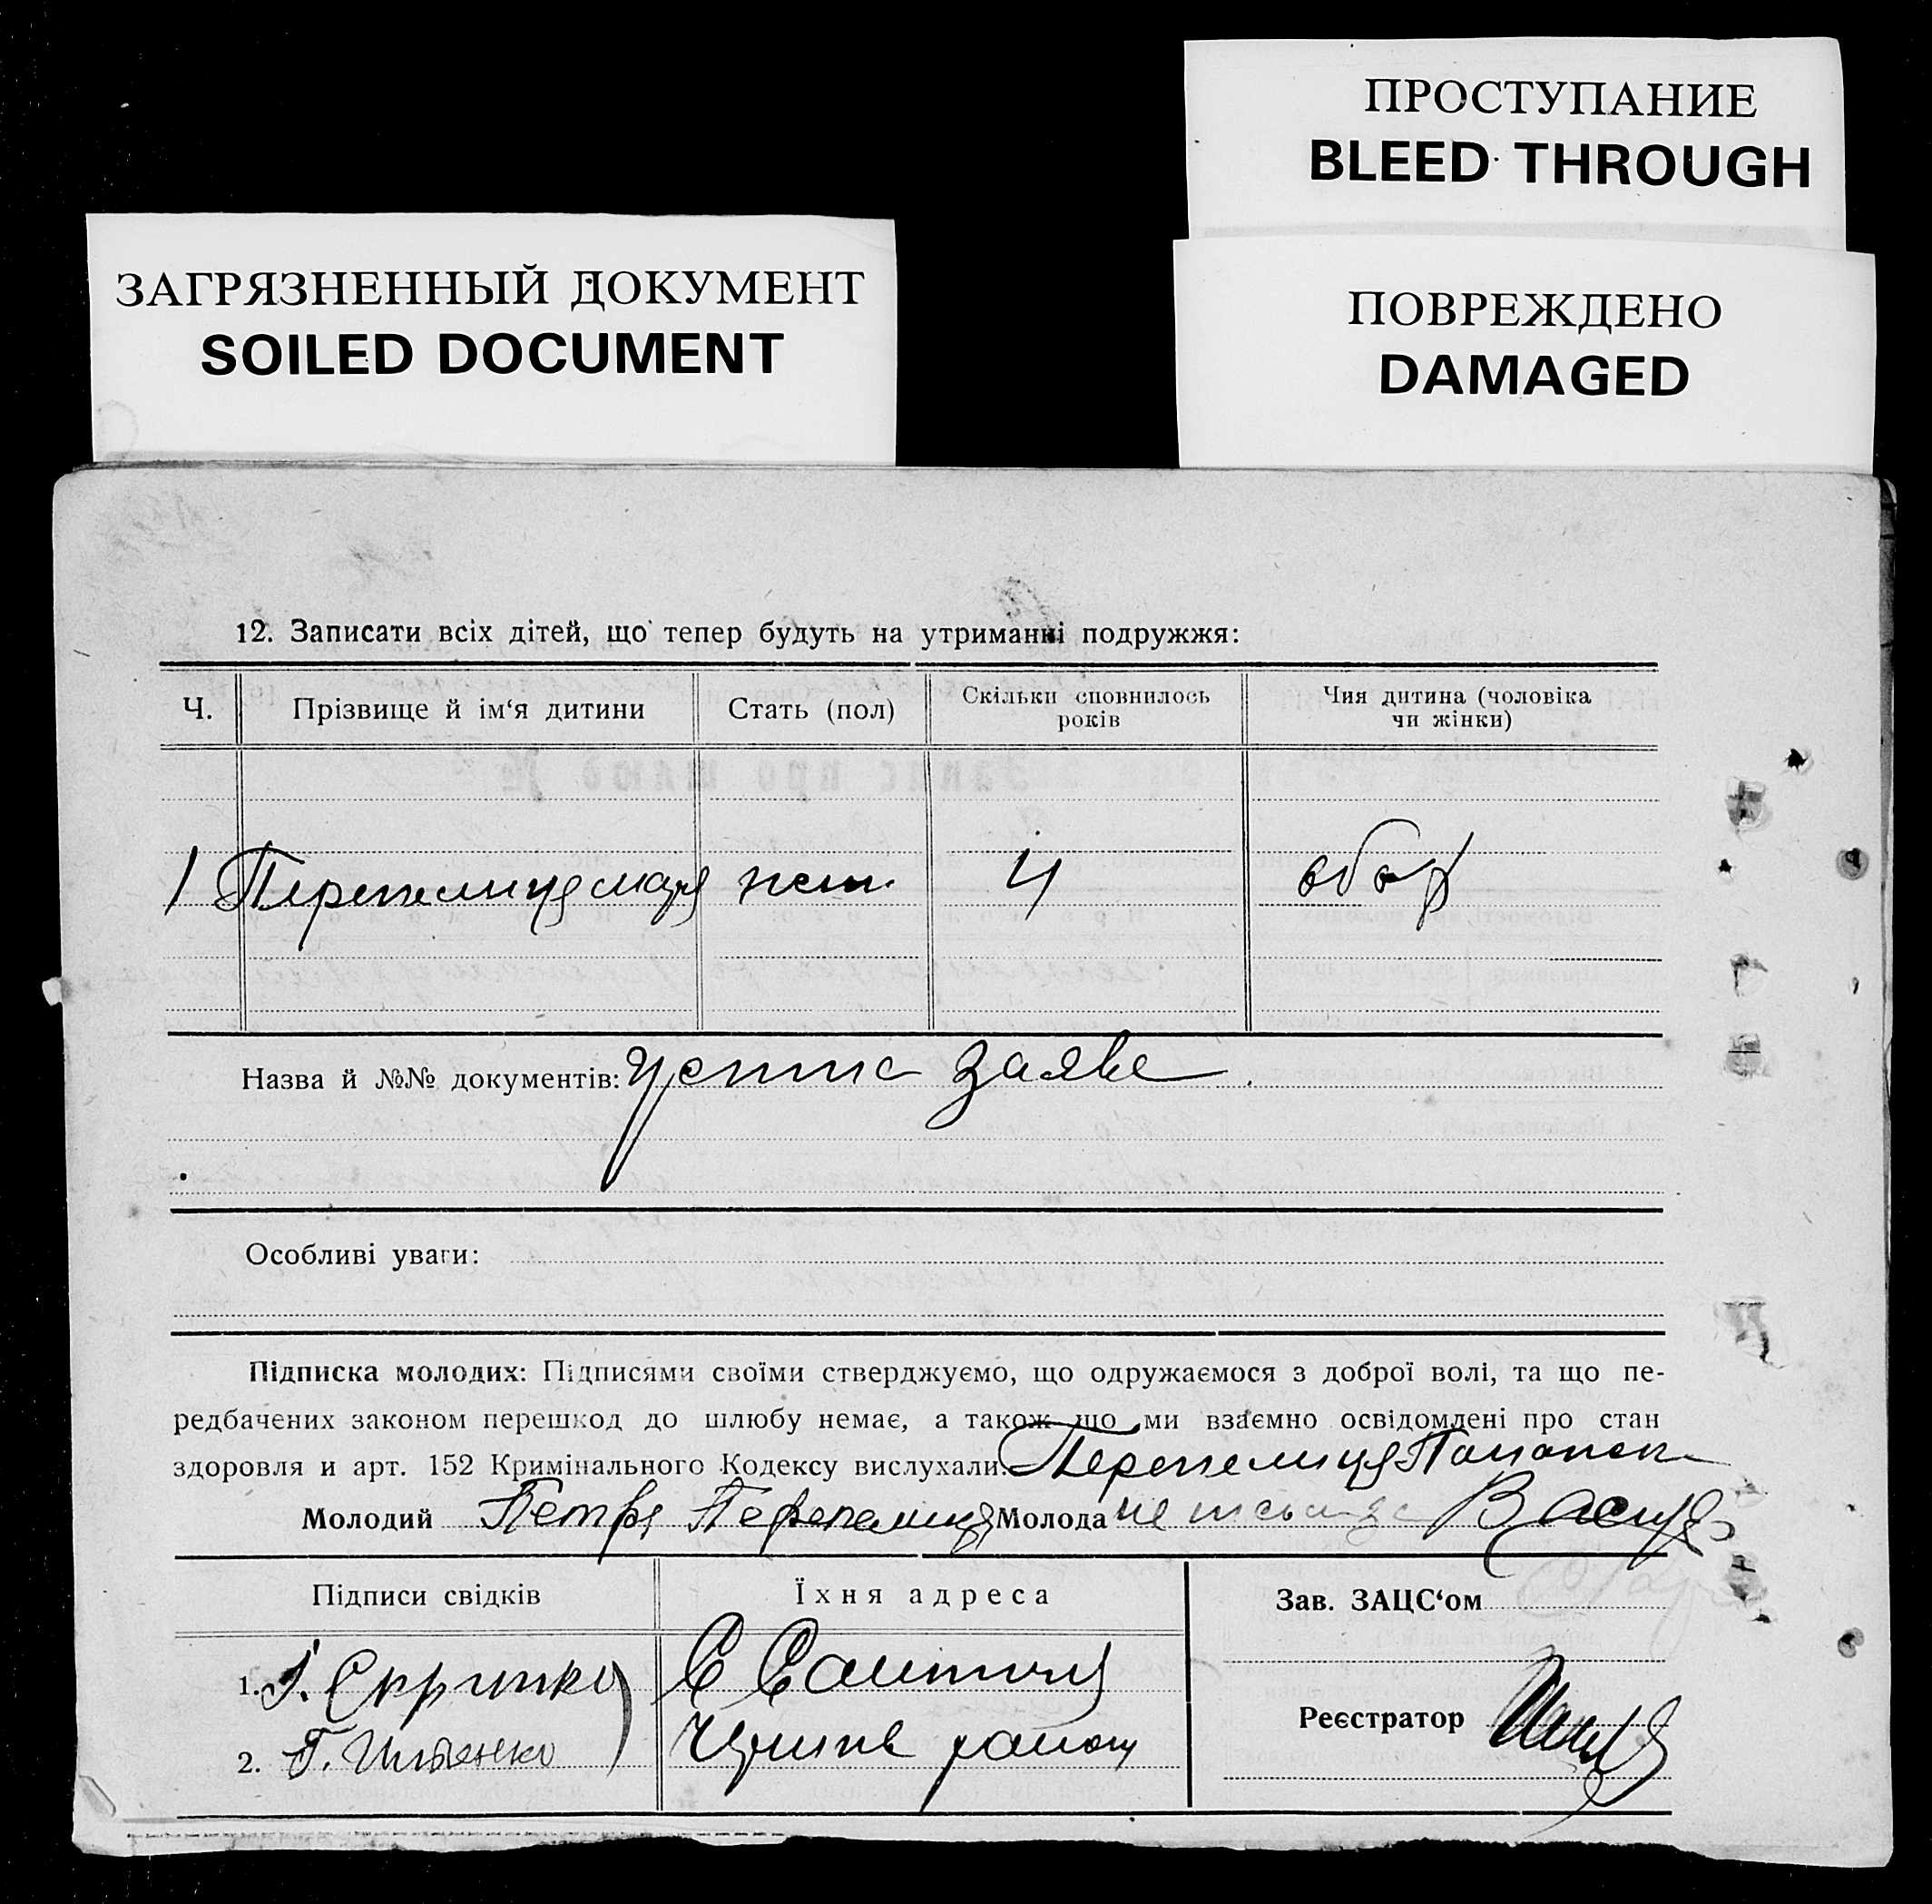 ПРОСТУПАНИЕ
BLEED THROUGH
ЗАГРЯЗНЕННЫЙ ДОКУМЕНТ
SOILED DOCUMENT
ПОВРЕЖДЕНО
DAMAGED
12. Записати всіх дітей, що тепер будуть на утриманні подружжя:
Ч. Прізвище й ім‘я дитини Стать (пол) Скільки сповнилось років Чия дитина (чоловіка чи жінки)
1 Перепелиця 4
Назва й №№ документів: заяве
Особливі уваги:
Підписка молодих: Підписями своїми стверджуємо, що одружаємося з доброї волі, та що пе-
редбачених законом перешкод до шлюбу немає, а також що ми взаємно освідомлені про стан
здоровля и арт. 152 Кримінального Кодексу вислухали. Перепелиця
Молодий Петро Перепелиця Молода
Підписи свідків Їхня адреса Зав. ЗАЦС‘ом
1.
2. район
Реєстратор